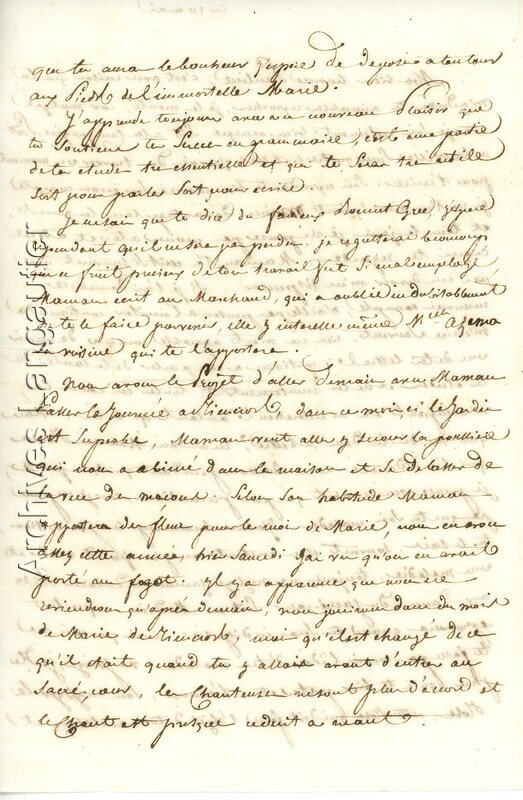 que tu aura le bonheur j'espere de deposer a ton tour
aux Pieds de l'immortelle Marie.
J'apprends toujours avec un nouveau Plaisir que
tu soutiens tes Succes en grammaire, c'est une partie
de tes etudes tres essentielle et qui te sera tres utile
soit pour parler soit pour ecrire.
Je ne sais que te dire du fameux Bonnet Grec, j'espere
cependant qu'il ne sera pas perdu, je regretterai beaucoup
que ce fruit precieux de ton travail fut si mal employé
Maman ecrit au Marchand, qui a oublié indubitablement
de te le faire parvenir, elle y interesse même Mlle Azema
sa voisine qui te l'apportera.
Nous avons le Projet d'aller demain avec Maman
Passer la Journée a, dans ce mois ci le Jardin
est Superbe, Maman veut aller y secouer la poussiere
qui nous a abimé dans la maison et se delasser de
la vue des macons. Selon son habitude Maman
apportera des fleurs pour le moi de Marie, nous en avons
assez cette année, hier Samedi J'ai vu qu'on en avait
porté un fagot. Il y a apparence que nous ne
reviendrons qu'après demain, nous jouirons donc du mois
de Marie de, mais qu'il est changé de ce
qu'il etait quand tu y allais avant d'entrer au
Sacré, cœur, les Chanteuses ne sont plus d'accord et
le Chant est presque reduit a neant.
Archives Langautier